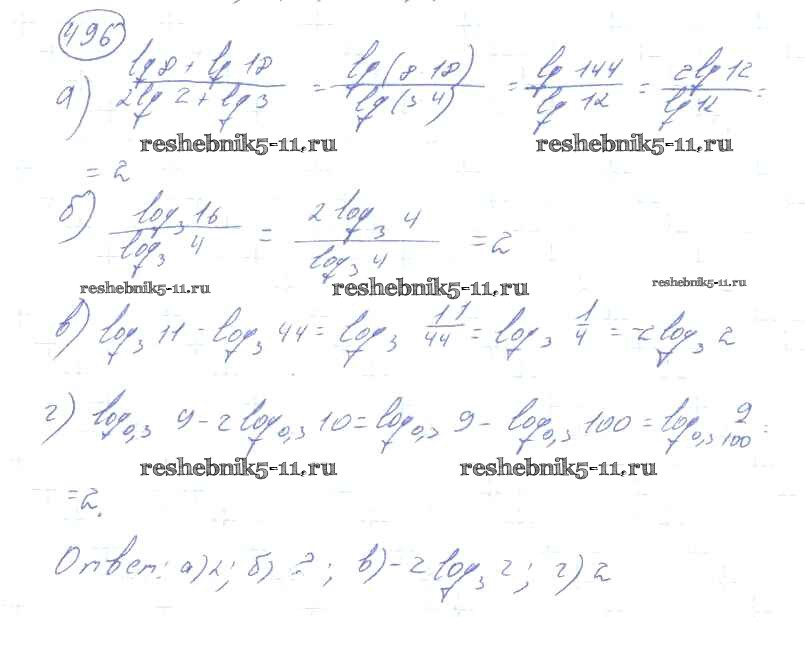 496
а) (lg 8 + lg 18)/(2lg 2 + lg 3) = lg(8·18)/lg(3·4) = lg 144/lg 12 = 2lg 12/lg 12 =
reshebnik5-11.ru reshebnik5-11.ru
= 2
б) log₃ 16/log₃ 4 = 2 log₃ 4/log₃ 4 = 2
reshebnik5-11.ru reshebnik5-11.ru reshebnik5-11.ru
в) log₃ 11 - log₃ 44 = log₃ 11/44 = log₃ 1/4 = -2log₃ 2
г) log₀,₃ 9 - 2log₀,₃ 10 = log₀,₃ 9 - log₀,₃ 100 = log₀,₃ 9/100 =
reshebnik5-11.ru reshebnik5-11.ru
= 2.
Ответ: а) 2; б) 2; в) -2log₃ 2; г) 2